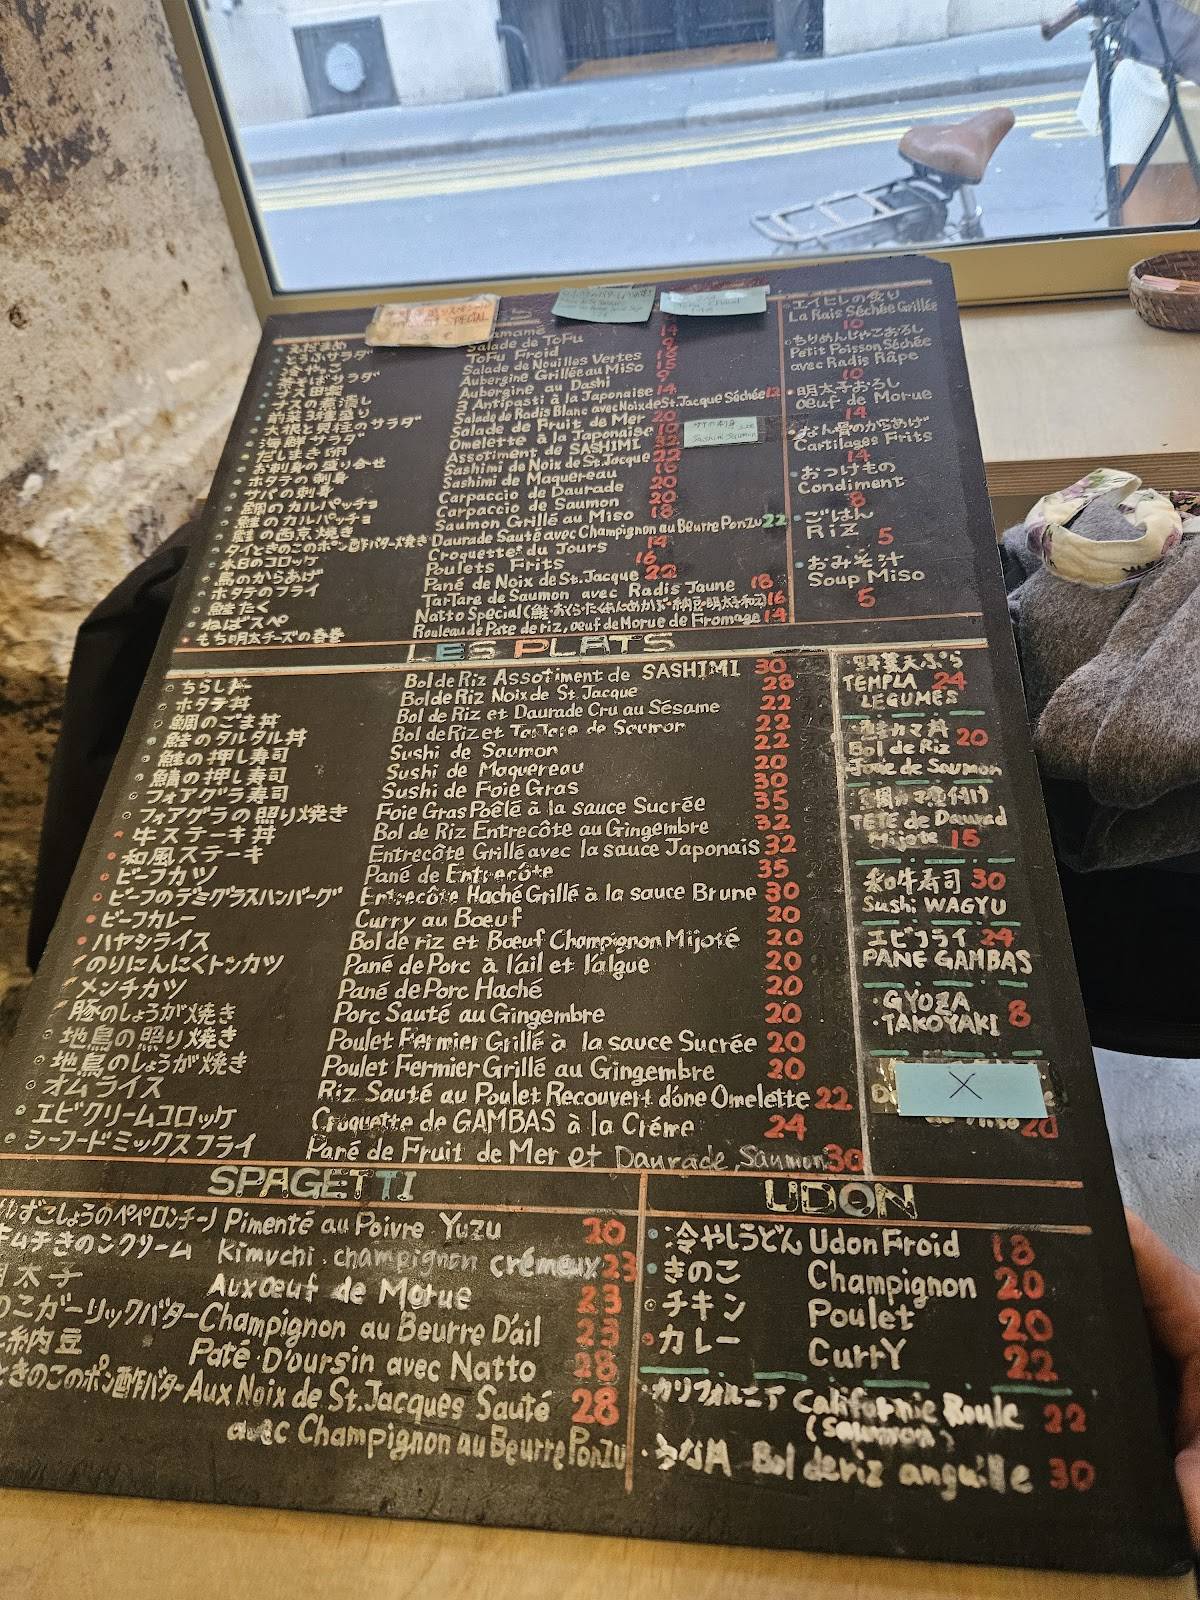 SPECIAL
えだまめ amamé 14
とうふサラダ Salade de ToFu 9
ToFu Froid
茶そばサラダ Salade de Nouilles Vertes 15
ナス田楽 Aubergine Grillée au Miso 9
Aubergine au Dashi
前菜3種盛り 3 Antipasti à la Japonaise 14
大根と貝柱のサラダ Salade de Radis Blanc avec Noix de St. Jacque Séchée 12
海鮮サラダ Salade de Fruit de Mer 20
だしまき卵 Omelette à la Japonaise 10
お刺身の盛り合せ Assotiment de SASHIMI 32
ホタテの刺身 Sashimi de Noix de St. Jacque 22
サバの刺身 Sashimi de Maquereau 16
鯛のカルパッチョ Carpaccio de Daurade 20
鮭のカルパッチョ Carpaccio de Saumon 20
鮭の西京焼き Saumon Grillé au Miso 18
タイときのこのポン酢バター焼き Daurade Sauté avec Champignon au Beurre Ponzu 22
本日のコロッケ Croquettes du Jours 14
鳥のからあげ Poulets Frits 16
ホタテのフライ Pané de Noix de St. Jacque 22
鮭たく TarTare de Saumon avec Radis Jaune 18
ねばスペ Natto Special 16
もち明太チーズの春巻 Rouleau de Pate de riz, œuf de Morue de Fromage 14
サケの刺身
Sashimi Saumon
エイヒレの炙り
La Rais Séchée Grillée
10
ちりめんじゃこおろし
Petit Poisson Séchée
avec Radis Râpe
10
明太子おろし
œuf de Morue
14
なん骨のからあげ
Cartilages Frits
14
おつけもの
Condiment
8
ごはん
RiZ 5
おみそ汁
Soup Miso
5
LES PLATS
ちらし丼 Bol de Riz Assotiment de SASHIMI 30
ホタテ丼 Bol de Riz Noix de St. Jacque 28
鯛のごま丼 Bol de Riz et Daurade Cru au Sésame 22
鮭のタルタル丼 Bol de Riz et TarTare de Saumon 22
鮭の押し寿司 Sushi de Saumon 22
鯖の押し寿司 Sushi de Maquereau 20
フォアグラ寿司 Sushi de Foie Gras 30
フォアグラの照り焼き Foie Gras Poêlé à la sauce Sucrée 35
牛ステーキ丼 Bol de Riz Entrecôte au Gingembre 32
和風ステーキ Entrecôte Grillé avec la sauce Japonais 32
ビーフカツ Pané de Entrecôte 35
ビーフのデミグラスハンバーグ Entrecôte Haché Grillé à la sauce Brune 30
ビーフカレー Curry au Bœuf 20
ハヤシライス Bol de riz et Bœuf Champignon Mijoté 20
のりにんにくトンカツ Pané de Porc à l'ail et l'algue 20
メンチカツ Pané de Porc Haché 20
豚のしょうが焼き Porc Sauté au Gingembre 20
地鳥の照り焼き Poulet Fermier Grillé à la sauce Sucrée 20
地鳥のしょうが焼き Poulet Fermier Grillé au Gingembre 20
オムライス Riz Sauté au Poulet Recouvert d'one Omelette 22
エビクリームコロッケ Croquette de GAMBAS à la Créme 24
シーフードミックスフライ Pané de Fruit de Mer et Daurade, Saumon 30
野菜天ぷら
TEMPLA 24
LEGUMES
鮭カマ丼
Bol de Riz 20
Joue de Saumon
鯛カマ煮付け
TETE de Daurad
Mijote 15
和牛寿司 30
Sushi WAGYU
エビフライ 24
PANE GAMBAS
GYOZA
TAKOYAKI 8
X
20
SPAGETTI
ゆずこしょうのペペロンチーノ Pimenté au Poivre Yuzu 20
キムチきのこクリーム Kimuchi champignon crémeux 23
明太子 Aux œuf de Morue 23
のこガーリックバター Champignon au Beurre D'ail 23
納豆 Paté D'oursin avec Natto 28
ときのこのポン酢バター Aux Noix de St. Jacques Sauté 28
avec Champignon au Beurre Ponzu
UDON
冷やしうどん Udon Froid 18
きのこ Champignon 20
チキン Poulet 20
カレー CurrY 22
カリフォルニア Californie Roule 22
(Saumon)
うな丼 Bol de riz anguille 30